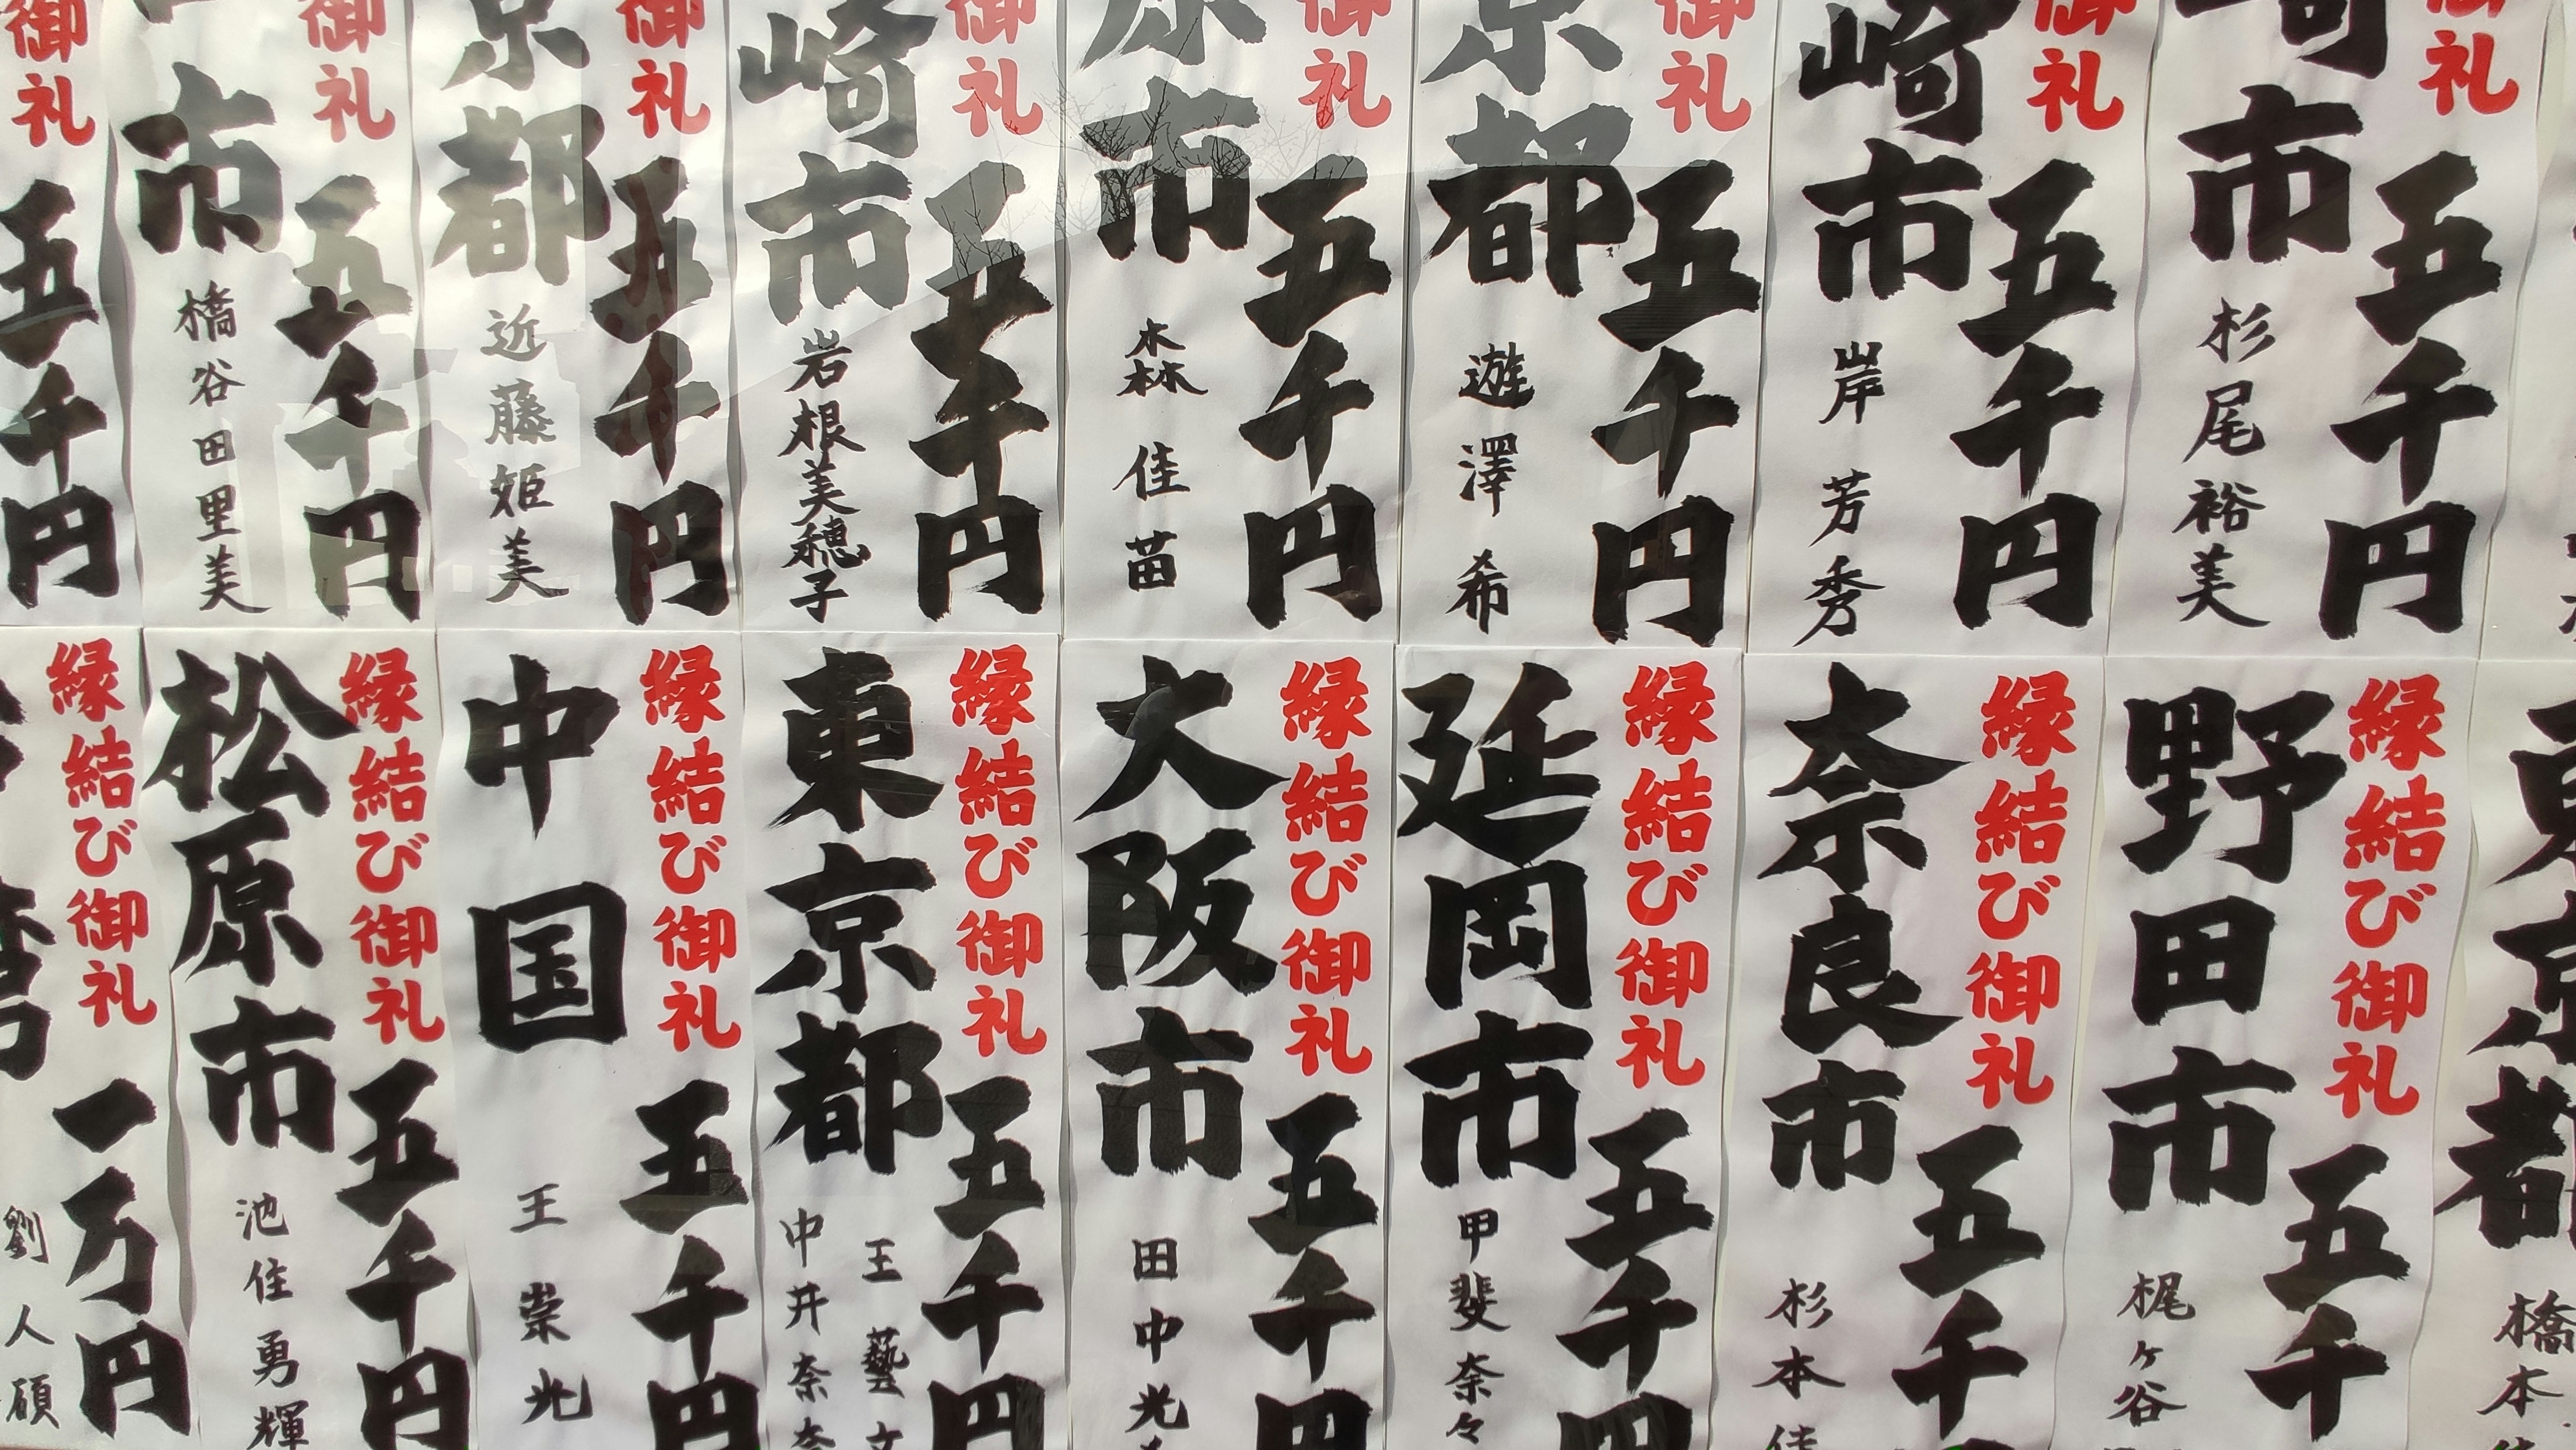 御礼 五千円
市 杉尾裕美
御礼 五千円
崎市 岸芳秀
御礼 五千円
京都 遊澤希
御礼 五千円
原市 森佳苗
御礼 五千円
崎市 岩根美穂子
御礼 五千円
京都 近藤姫美
御礼 五千円
市 橋谷田里美
御礼 五千円
東京都 橋本
縁結び御礼 五千
野田市 梶ヶ谷
縁結び御礼 五千
奈良市 杉本佳
縁結び御礼 五千円
延岡市 甲斐奈々
縁結び御礼 五千円
大阪市 田中光
縁結び御礼 五千円
東京都 王藝文
中井奈奈
縁結び御礼 五千円
中国 王崇光
縁結び御礼 五千円
松原市 池住勇輝
縁結び御礼 一万円
湾 劉人碩